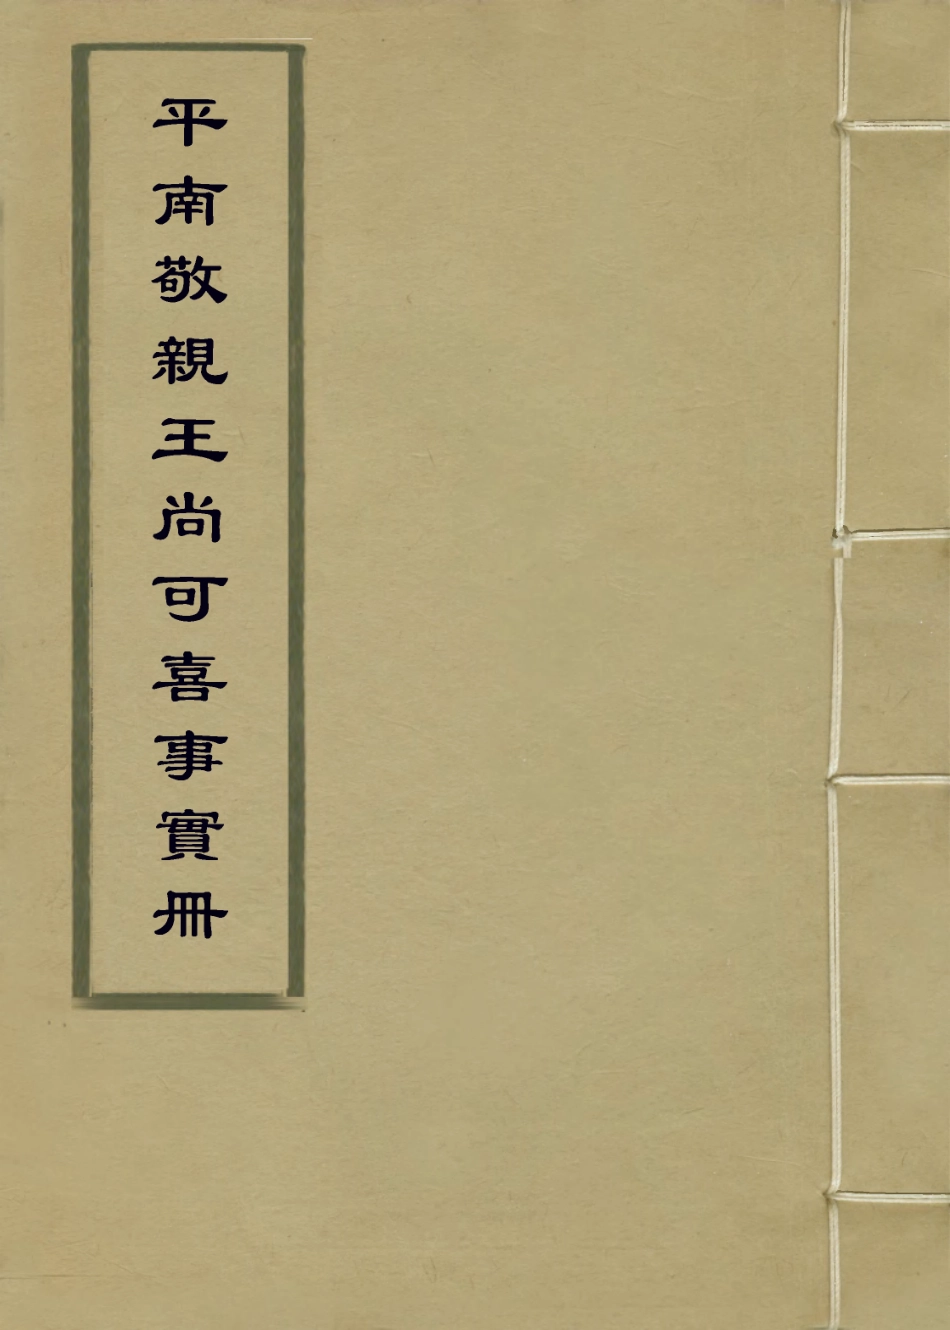 平南敬親王尚可喜事實冊